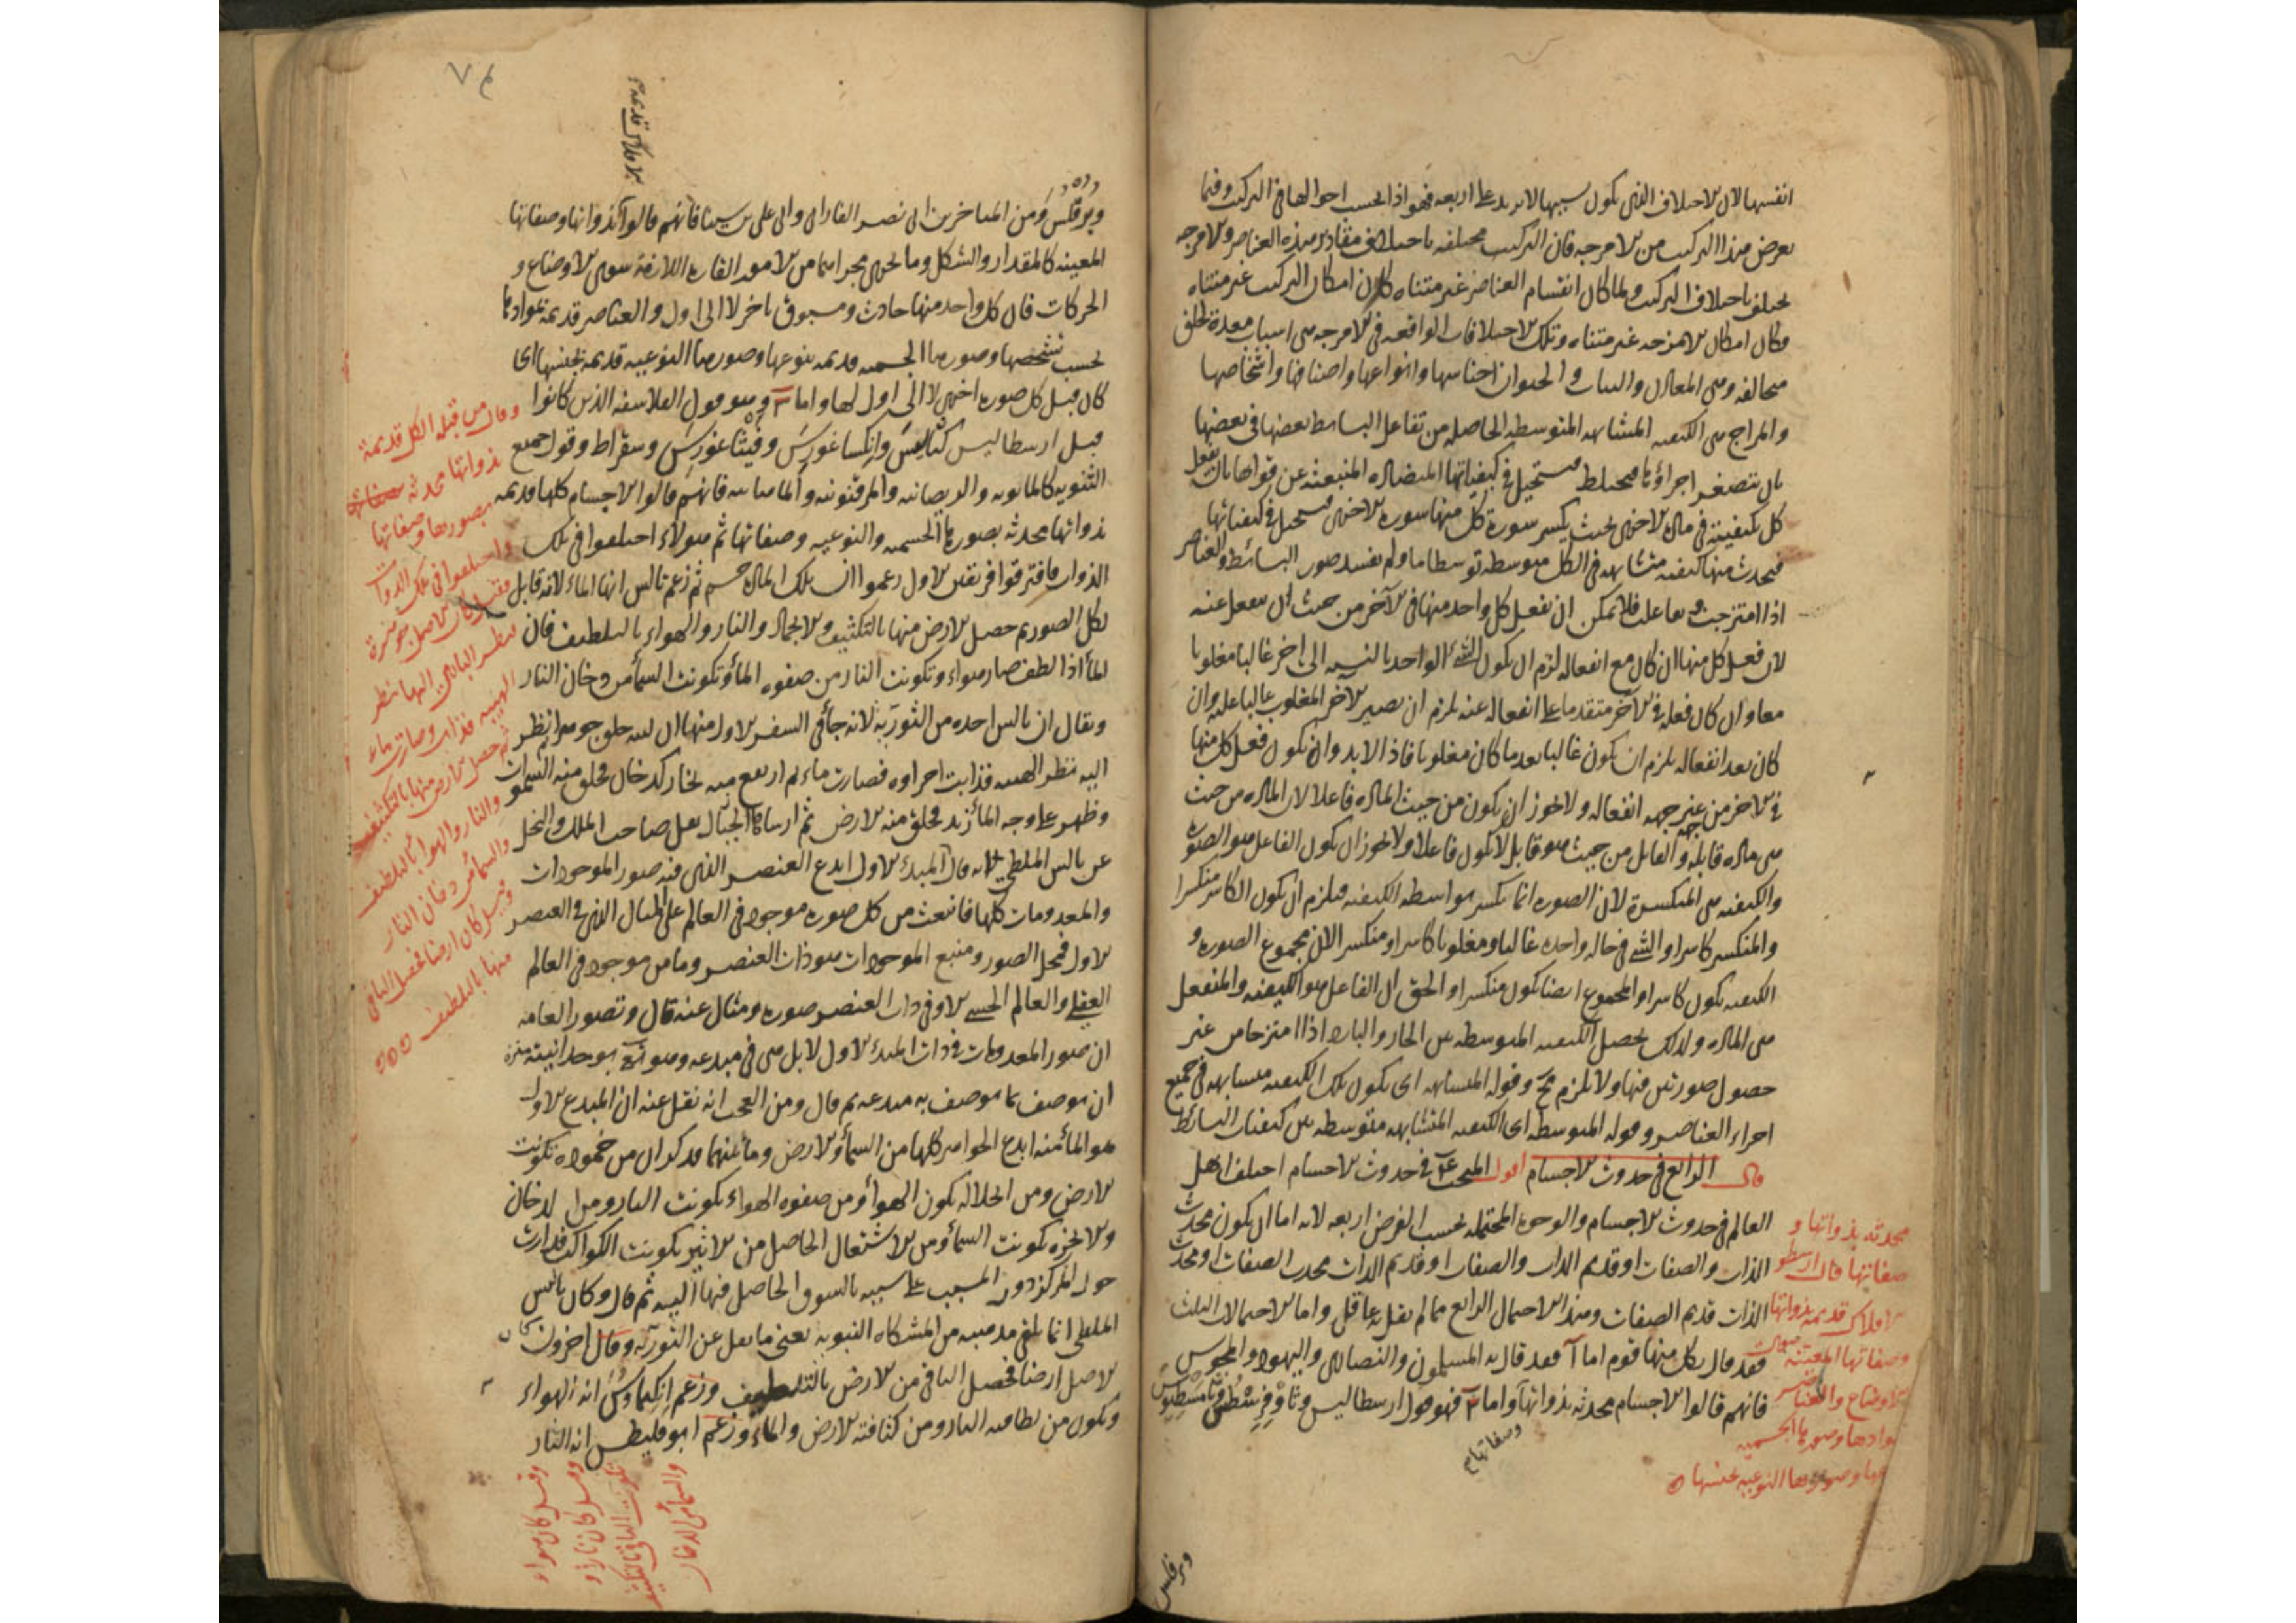 انفسها لان الاختلاف الذى يكون بسببها لا يزيد على اربعة فهو اذا بحسب احوالها فى التركيب وفيما
يعرض بهذا التركيب من الامزجة فان التركيب مختلفة باختلاف مقادير هذه العناصر والامزجة
تختلف باختلاف التركيب ولما كان انقسام العناصر غير متناه كان امكان التركيب غير متناه
وكان امكان الامزجة غير متناه وتلك الاختلافات الواقعة فى الامزجة هى اسباب معدة لخلق
مخالفة وهى المعادن والنبات والحيوان اجناسها وانواعها واصنافها واشخاصها
والمزاج هى الكيفية المتشابهة المتوسطة الحاصلة من تفاعل البسائط بعضها فى بعضها
بان تتصغر اجزاؤها فيختلط مستحيل فى كيفياتها المتضادة المنبعثة عن قواها بان يفعل
كل بكيفيته فى مادة الاخرى بحيث يكسر سورة كل منها سورة الاخرى فيستحيل فى كيفياتها
فيحدث منها كيفية متشابهة فى الكل متوسطة توسطا ما ولم تفسد صور البسائط والعناصر
اذا امتزجت وتفاعلت فلا يمكن ان يفعل كل واحد منها فى الآخر من حيث ان ينفعل عنه
لان فعل كل منها ان كان مع انفعاله لزم ان يكون الشىء الواحد بالنسبة الى اخر غالبا مغلوبا
معا وان كان فعله فى الآخر متقدما على انفعاله عنه يلزم ان يصير الاخر المغلوب غالبا عليه وان
كان بعد انفعاله يلزم ان يكون غالبا بعد ما كان مغلوبا فاذا لا بد وان يكون فعل كل منها
فى الاخر من غير جهة انفعاله ولا يجوز ان يكون من حيث المادة فاعلا لان المادة من حيث
هى مادة قابلة والقابل من حيث هو قابل لا يكون فاعلا ولا يجوز ان يكون الفاعل هو الصورة
والكيفية هى المنكسرة لان الصورة انما تكسر بواسطة الكيفية فيلزم ان يكون الكاسر منكسرا
والمنكسر كاسرا والشىء فى حالة واحدة غالبا ومغلوبا كاسرا ومنكسرا لان مجموع الصورة و
الكيفية يكون كاسرا والمجموع ايضا يكون منكسرا والحق ان الفاعل هو الكيفية والمنفعل
هى المادة ولذلك يحصل الكيفية المتوسطة بين الحار والبارد اذا امتزجا من غير
حصول صورتين فيها ولا يلزم مح وقوله المتشابهة اى يكون تلك الكيفية متشابهة فى جميع
اجزاء العناصر وقوله المتوسطة اى الكيفية المتشابهة متوسطة بين كيفيات البسائط
قال الرابع فى حدوث الاجسام اقول المبحث فى حدوث الاجسام اختلف اهل
العالم فى حدوث الاجسام والوجوه المحتملة بحسب الفرض اربعة لانه اما ان يكون محدث
الذات والصفات او قديم الذات والصفات او قديم الذات محدث الصفات او محدث
الذات قديم الصفات وهذا الاحتمال الرابع مما لم يقل به عاقل واما الاحتمالات الثلث
فقد قال بكل منها قوم اما آ فقد قال به المسلمون والنصارى واليهود والمجوس
فانهم قالوا الاجسام محدثة بذواتها واما فهو قول ارسطاليس وثاوفرسطس وثامسطيوس
وصفاتها
محدثة بذواتها و
صفاتها قال ارسطو
الافلاك قديمة بذواتها
وصفاتها المعينة
الاوضاع والعناصر
بموادها وصورها الجسمية
وصورها النوعية بجنسها
وبرقلس
وبرقلس ومن المتاخرين ابى نصر الفارابى وابى على بن سينا فانهم قالوا بذواتها وصفاتها
المعينة كالمقدار والشكل وما يجرى مجراهما من الامور القارة اللازمة سوى الاوضاع و
الحركات فان كل واحد منها حادث ومسبوق باخر لا الى اول والعناصر قديمة بموادها
بحسب تشخصها وصورها الجسمية قديمة بنوعها وصورها النوعية قديمة بجنسها اى
كان قبل كل صورة اخرى لا الى اول لها واما وهو قول الفلاسفة الذين كانوا
قبل ارسطاليس كثاليس وانكساغورس وفيثاغورس وسقراط وقول جميع
الثنوية كالمانوية والديصانية والمرقونية والماهانية فانهم قالوا الاجسام كلها قديمة
بذواتها محدثة بصورها الجسمية والنوعية وصفاتها ثم هولاء اختلفوا فى تلك
الذوات فافترقوا فرقتين الاول زعموا ان تلك المادة جسم ثم زعم ثالس انها الماء لانه قابل
لكل الصور ثم حصل الارض منها بالتكثيف والانجماد والنار والهواء بالتلطيف فان
الماء اذا لطف صار هواء وتكونت النار من صفوة الماء وتكونت السماء من دخان النار
ويقال ان ثالس اخذه من التورية لانه جاء فى السفر الاول منها ان الله خلق جوهرا ثم نظر
اليه نظر الهيبة فذابت اجزاؤه فصارت ماء ثم ارتفع منه بخار كدخان فخلق منه السموات
وظهر على وجه الماء زبد فخلق منه الارض ثم ارساها بالجبال نقل صاحب الملل والنحل
عن ثالس الملطى انه قال المبدئ الاول ابدع العنصر الذى فيه صور الموجودات
والمعدومات كلها فانبعث من كل صورة موجود فى العالم على المثال الذى فى العنصر
الاول فمحل الصور ومنبع الموجودات هو ذات العنصر وما من موجود فى العالم
العقلى والعالم الحسى الا وفى ذات العنصر صورة ومثال عنه قال وتصور العامة
ان صور المعدومات فى ذات المبدئ الاول لا بل هى فى مبدعه وهو تع بوحدانيته منزه
ان يوصف بما يوصف به مبدعه ثم قال ومن العجب انه نقل عنه ان المبدع الاول
هو الماء منه ابدع الجواهر كلها من السماء والارض وما بينهما فذكر ان من خموده تكونت
الارض ومن انحلاله تكون الهواء ومن صفوة الهواء تكونت النار ومن الدخان
والابخرة تكونت السماء ومن الاشتعال الحاصل من الاثير تكونت الكواكب فدارت
حول المركز دوران المسبب على سببه بالشوق الحاصل فيها اليه ثم قال وكان ثالس
الملطى انما تلقى مذهبه من المشكاة النبوية يعنى ما نقل عن التورية وقال اخرون كان
الاصل ارضا فحصل الباقى من الارض بالتلطيف وزعم انكيماوس انه الهواء
وتكون من لطافته النار ومن كثافته الارض والماء وزعم ابوقليطس انه النار
الافلاك قديمة
وقال من قبله الكل قديمة
بذواتها محدثة
بصورها وصفاتها
واختلفوا فى تلك الذوات
فقيل كان الاصل جوهرة
فنظر البارى اليها نظر
الهيبة فذابت وصارت ماء
ثم حصل الارض منها بالتكثيف
والنار والهواء بالتلطيف
والسماء من دخان النار
وقيل كان ارضا فحصل الباقى
منها بالتلطيف
وقيل كان هواء
وقيل كان نارا و
تكونت الباقى بالتكثيف
والسماء من الدخان